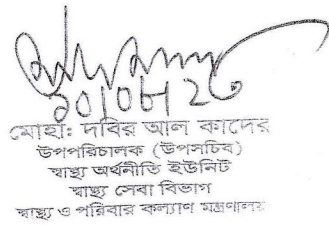 ১০/০৮/২৩
মোহা: দবির আল কাদের
উপপরিচালক (উপসচিব)
স্বাস্থ্য অর্থনীতি ইউনিট
স্বাস্থ্য সেবা বিভাগ
স্বাস্থ্য ও পরিবার কল্যাণ মন্ত্রণালয়